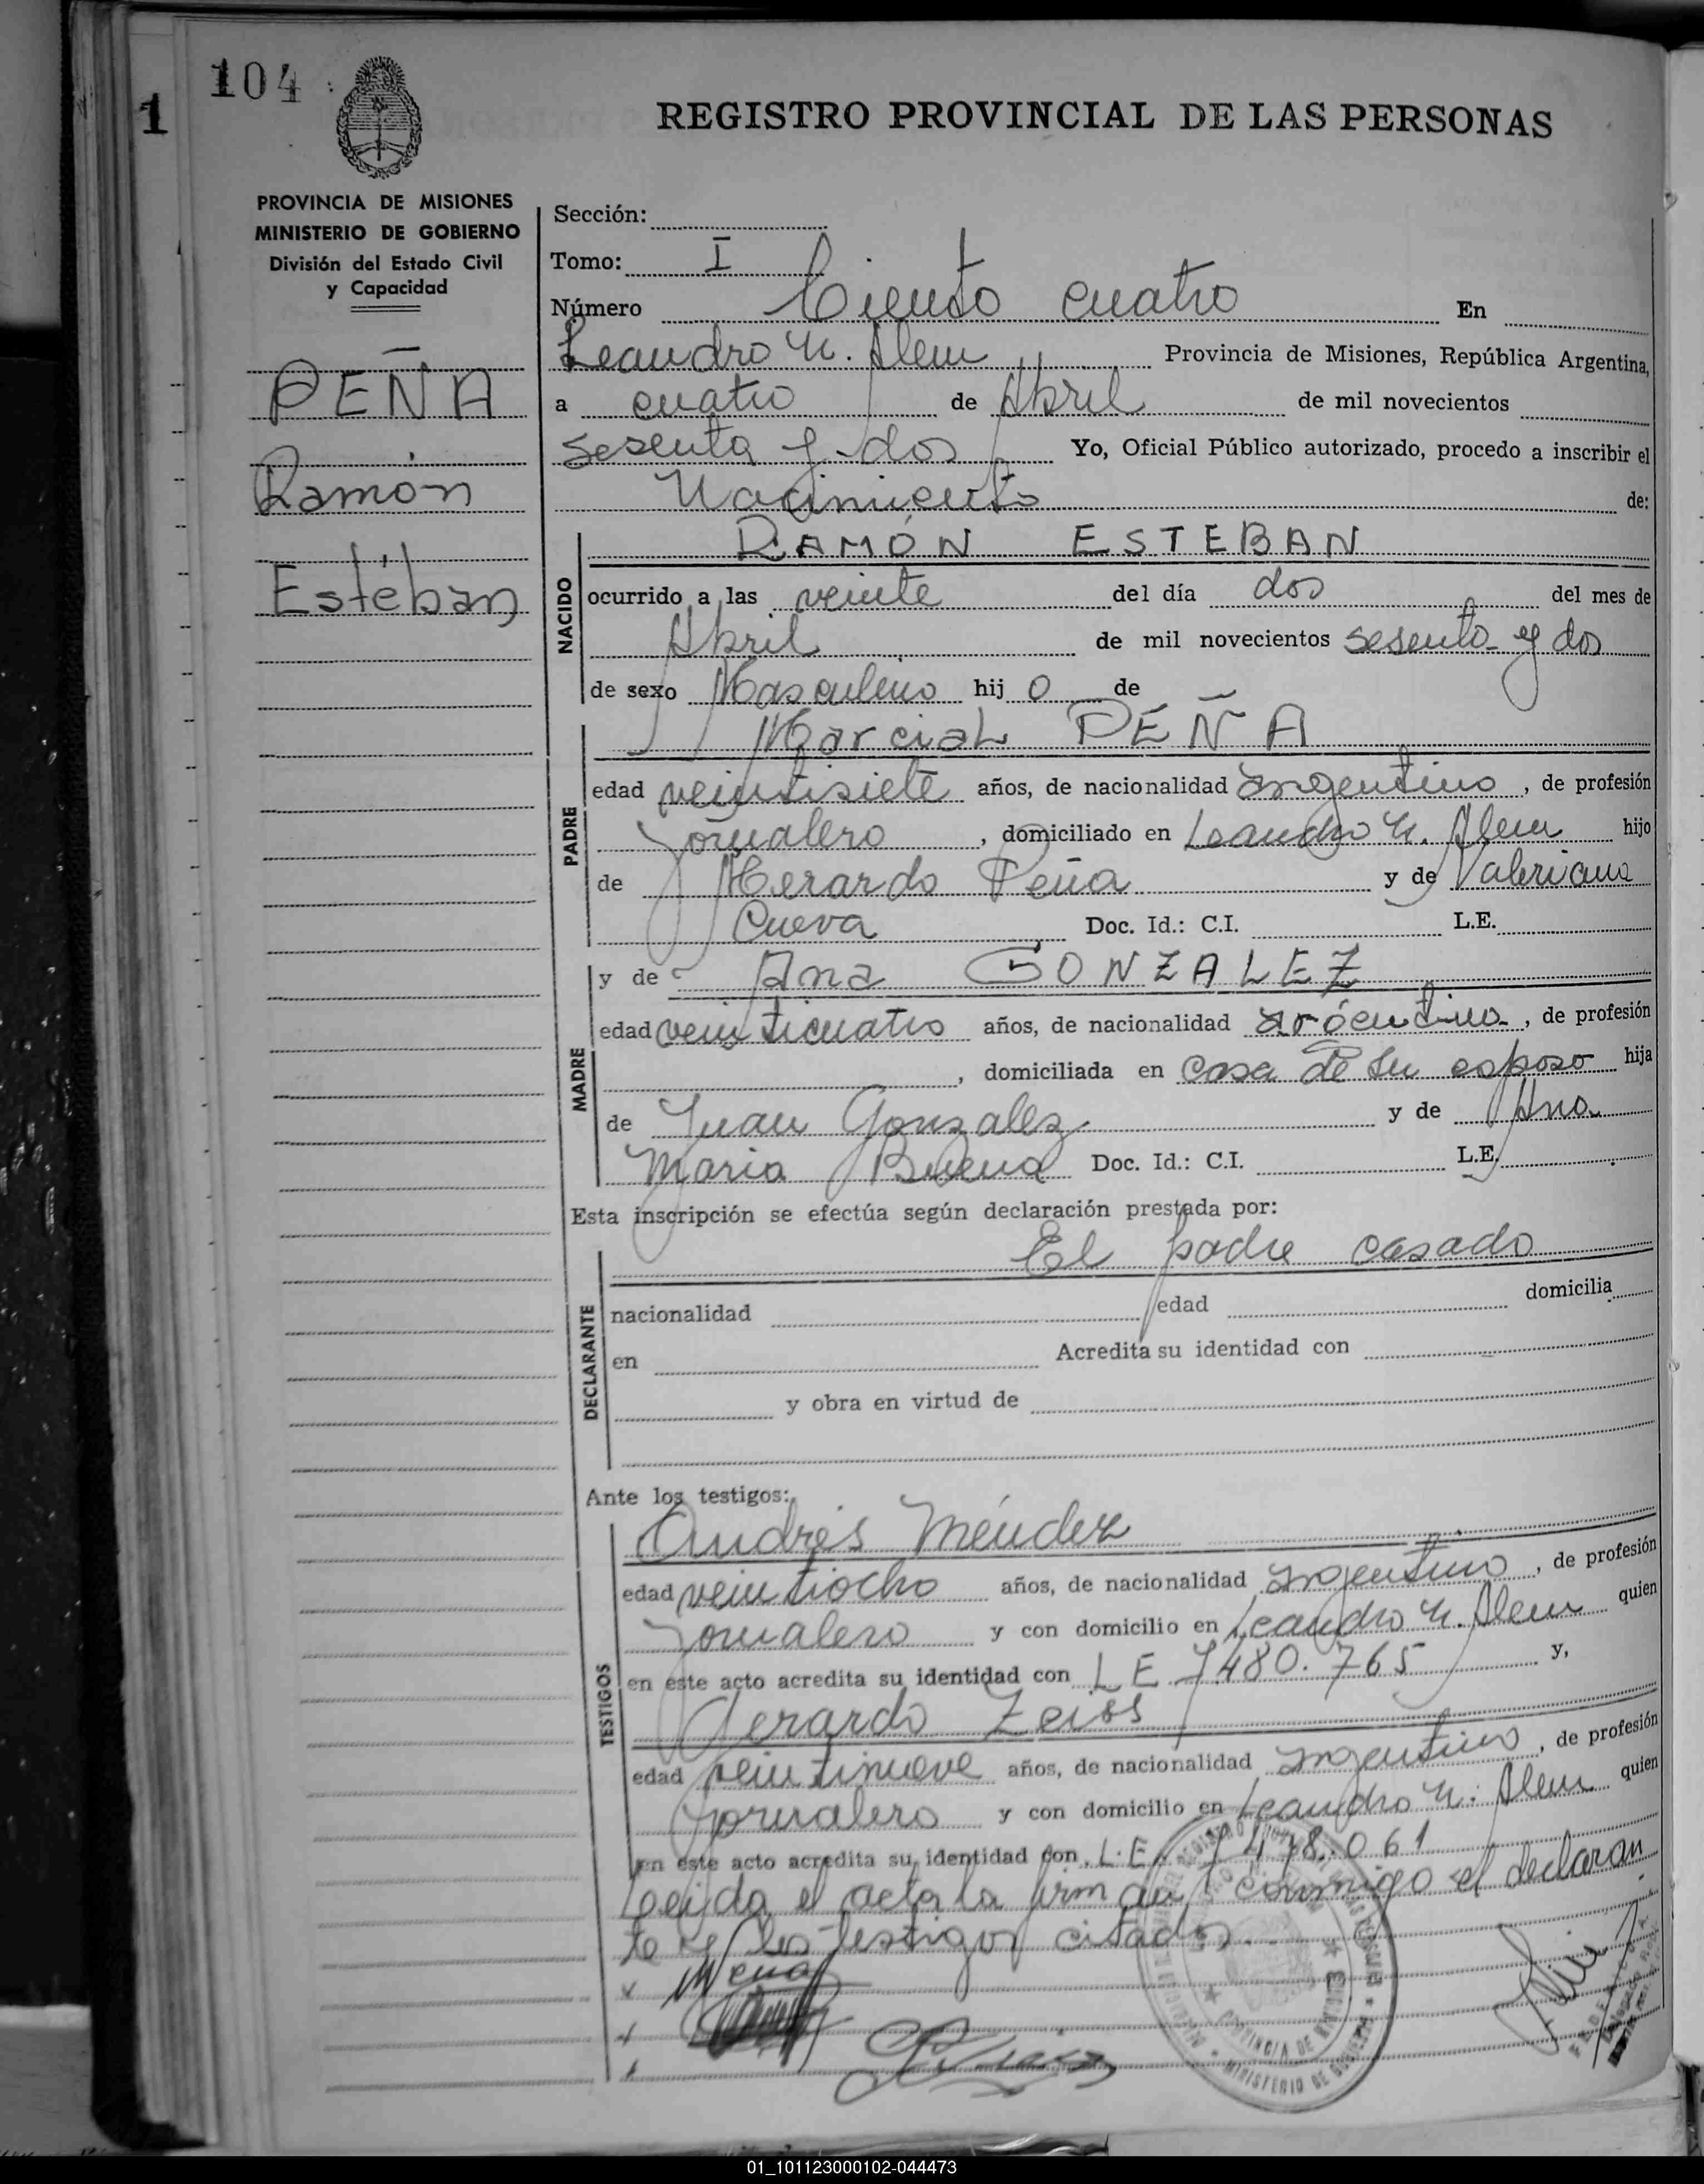 104
1
REGISTRO PROVINCIAL DE LAS PERSONAS
PROVINCIA DE MISIONES
MINISTERIO DE GOBIERNO
División del Estado Civil
y Capacidad
PEÑA
Ramón
Estéban
Sección:
Tomo: I
Número Ciento cuatro En
Leandro N. Alem Provincia de Misiones, República Argentina,
a cuatro de Abril de mil novecientos
sesenta y dos Yo, Oficial Público autorizado, procedo a inscribir el
Nacimiento de:
NACIDO
RAMÓN ESTEBAN
ocurrido a las veinte del día dos del mes de
Abril de mil novecientos sesenta y dos
de sexo Masculino hij o de
PADRE
Marcial PEÑA
edad veintisiete años, de nacionalidad argentino, de profesión
Jornalero, domiciliado en Leandro N. Alem hijo
de Merardo Peña y de Valeriana
Cueva Doc. Id.: C.I. L.E.
MADRE
y de Ana GONZALEZ
edad veinticuatro años, de nacionalidad argentina, de profesión
, domiciliada en casa de su esposo hija
de Juan Gonzalez y de Ana
Maria Doc. Id.: C.I. L.E.
Esta inscripción se efectúa según declaración prestada por:
DECLARANTE
El padre casado
nacionalidad edad domicilia
en Acredita su identidad con
y obra en virtud de
Ante los testigos:
TESTIGOS
Andrés Méndez
edad veintiocho años, de nacionalidad argentino, de profesión
Jornalero y con domicilio en Leandro N. Alem quien
en este acto acredita su identidad con L E 7480.765 y,
Gerardo Zeiss
edad veintinueve años, de nacionalidad argentino, de profesión
Jornalero y con domicilio en Leandro N. Alem quien
en este acto acredita su identidad con L.E. 7478.061
Leida el acta la firman conmigo el declaran
te y los testigos citados.
PROVINCIA DE MISIONES
MINISTERIO DE GOBIERNO
01_101123000102-044473